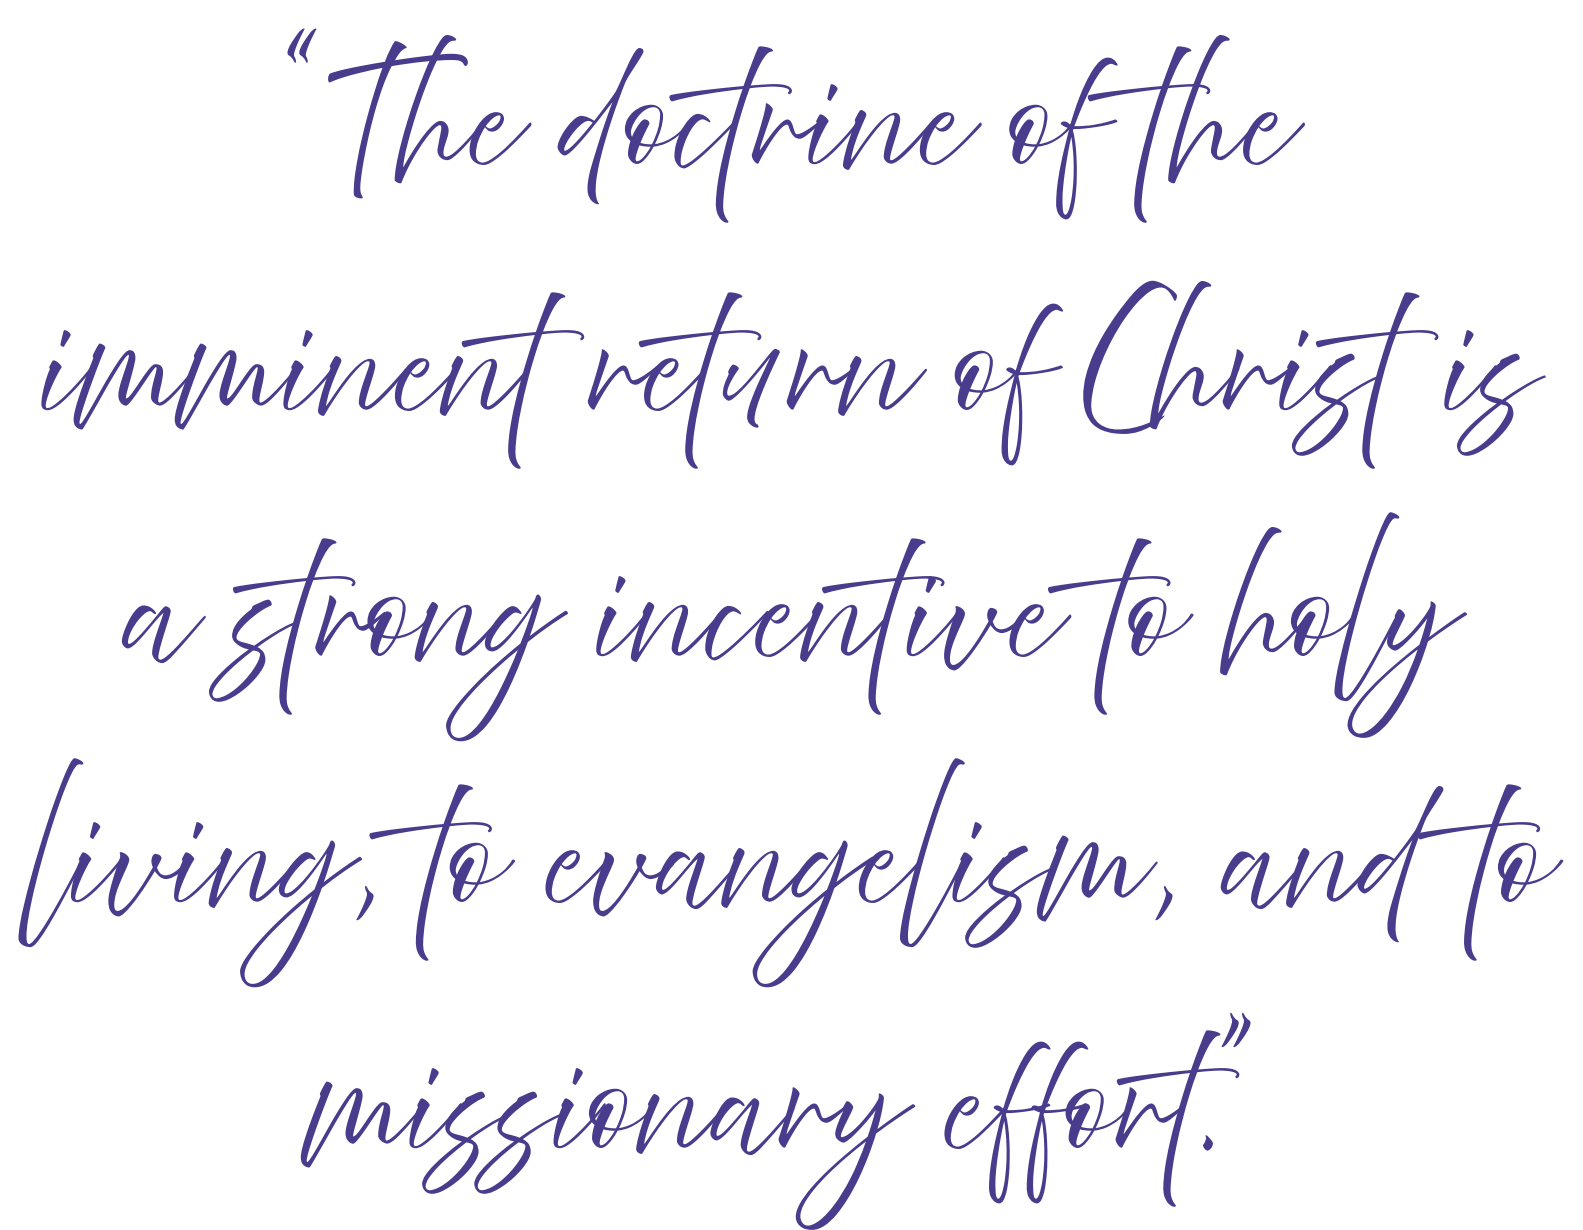 “The doctrine of the
imminent return of Christ is
a strong incentive to holy
living, to evangelism, and to
missionary effort.”